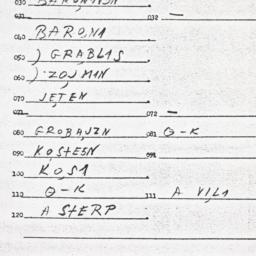 031 032 —
040 BARO,NA
050 ) GRABL1S
060 ) ZOJMIN
070 JETEN
071 072 —
080 GROBAJZN 081 O-K
090 KOSTESN 091
100 KOSA
110 O-K 111 A VILA
120 A STERP